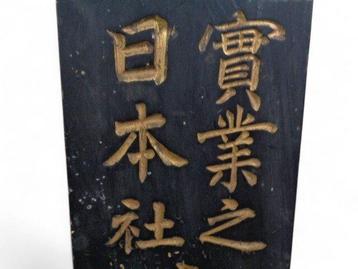 實業之
日本社